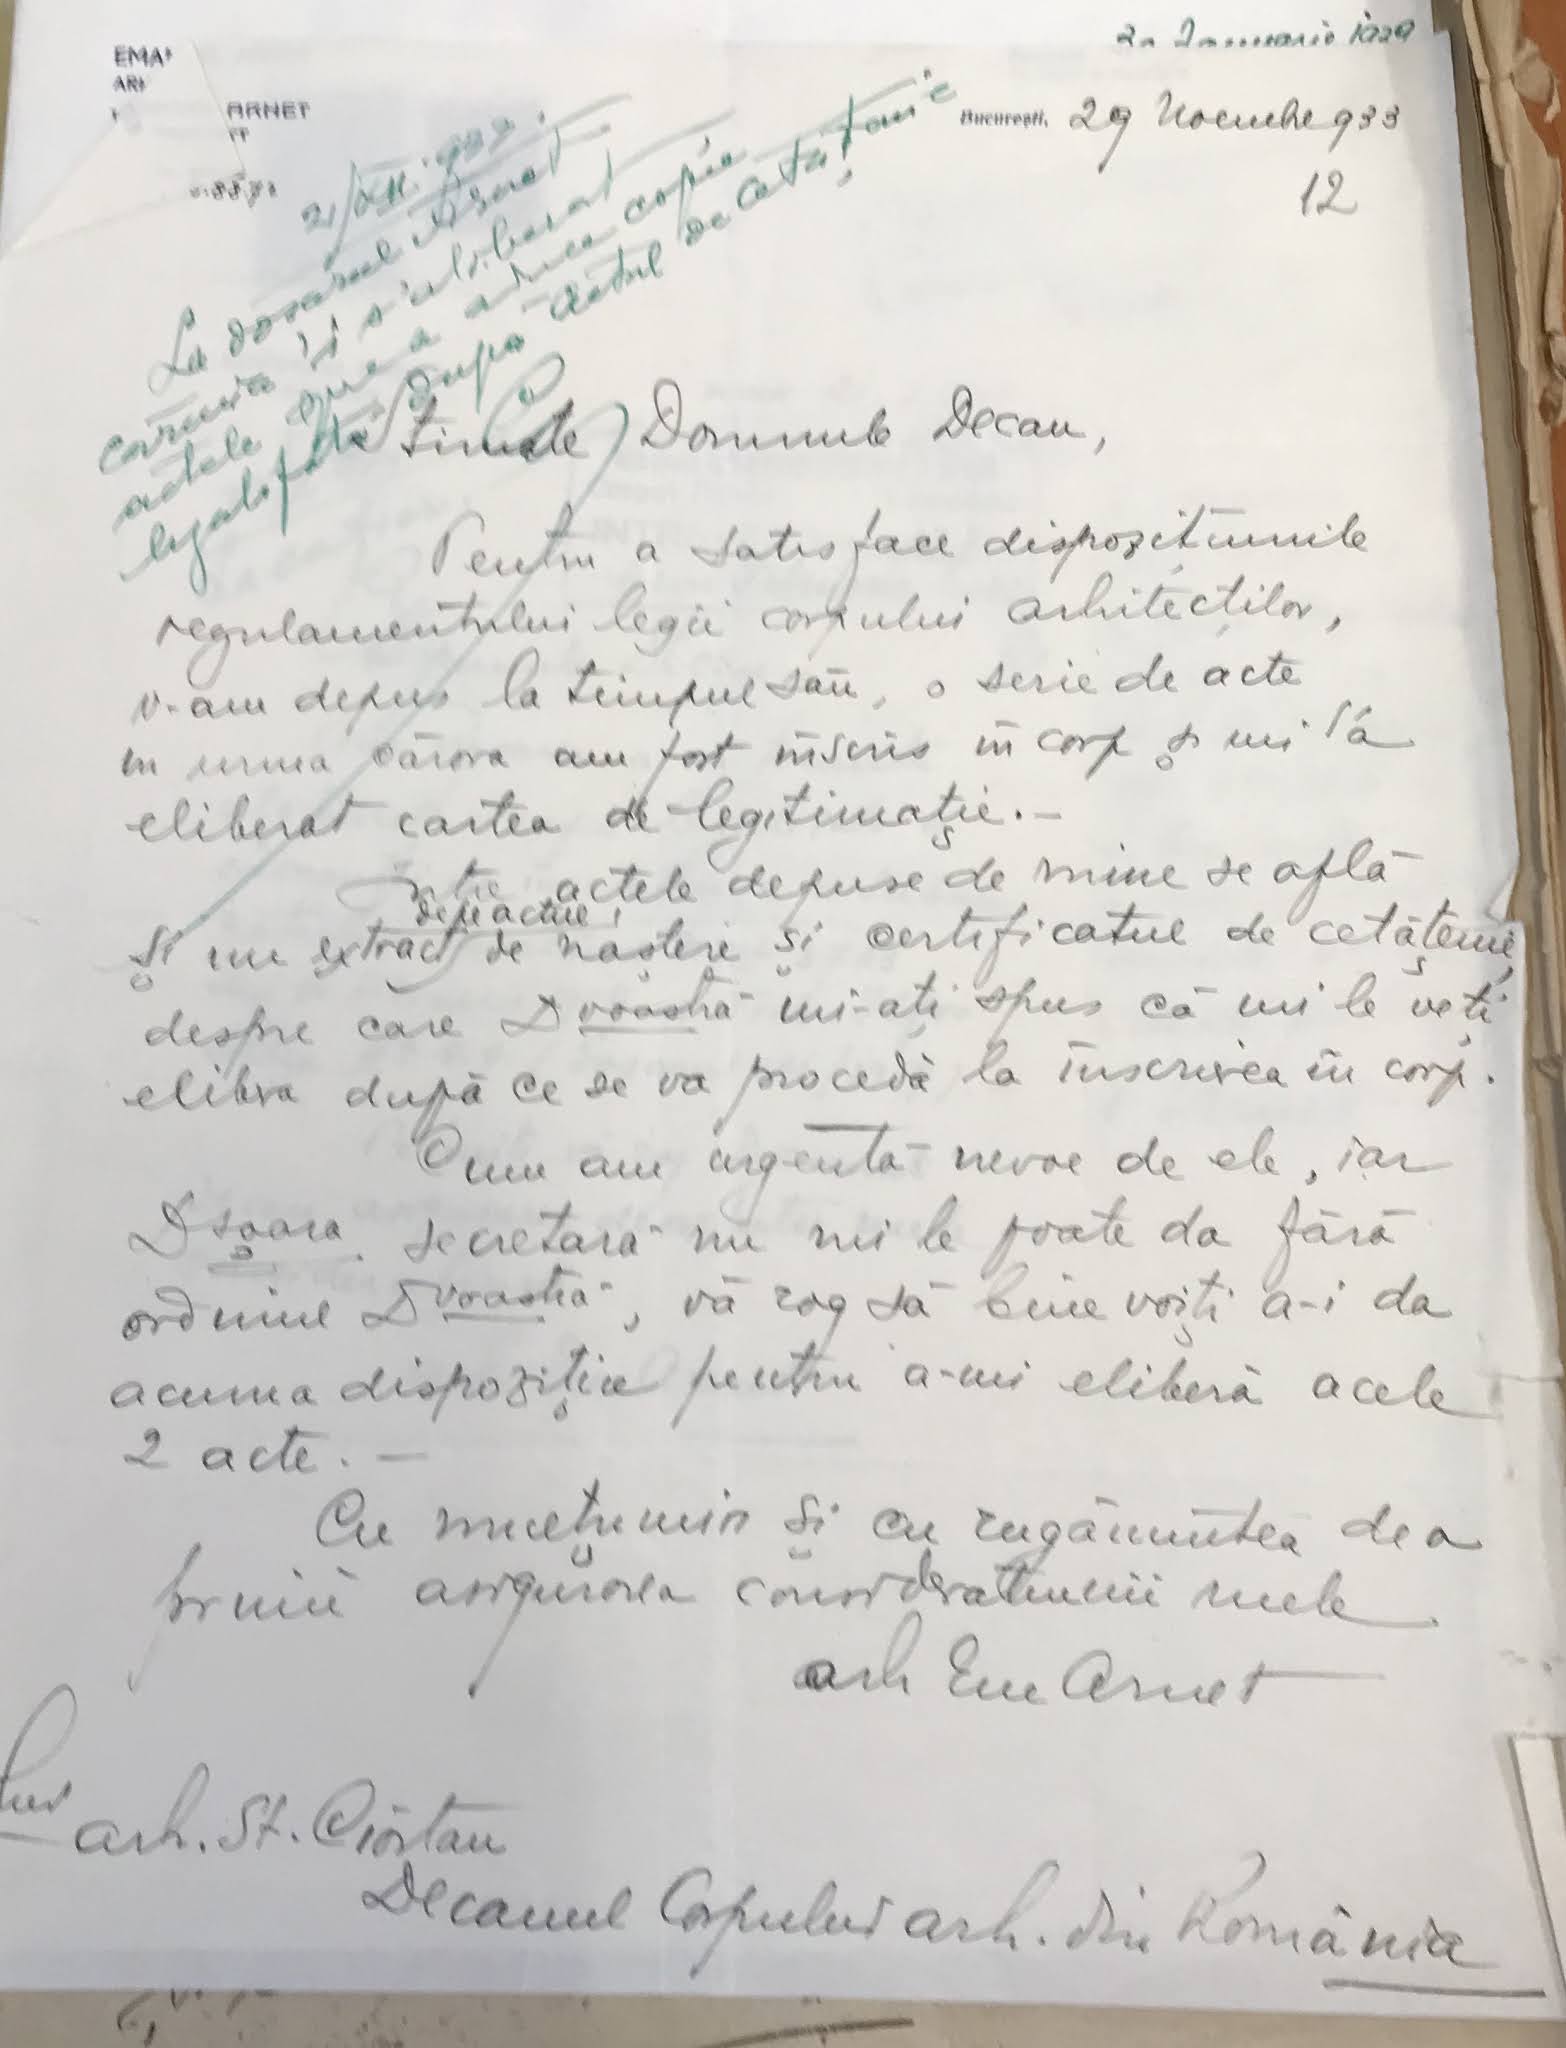 20 Ianuarie 1929
EMA
ARH
ARNET
București, 29 Noembre 933
12
21/XII. 933.
La dosarul Arnet
căruia i s'a liberat
actele spre a aduce copie
legalizată după actul de cetățenie
Stimate Domnule Decan,
Pentru a satisface dispozițiunile
regulamentului legii corpului arhitecților,
v-am depus la timpul său, o serie de acte
în urma cărora am fost înscris în corp și mi s'a
eliberat cartea de legitimație. –
Între actele depuse de mine se află
depe actul
și un extract de naștere și certificatul de cetățenie,
despre care Dvoastră mi-ați spus că mi le veți
elibera după ce se va procedà la înscrierea în corp.
Cum am urgentă nevoe de ele, iar
Dșoara secretară nu mi le poate da fără
ordinul Dvoastră, vă rog să bine voiți a-i da
acuma dispoziție pentru a-mi eliberà acele
2 acte. –
Cu mulțumiri și cu rugămintea de a
primi asigurarea considerațiunii mele
arh Em Arnet
Dlui
arh. St. Ciortan
Decanul Corpului arh. din România